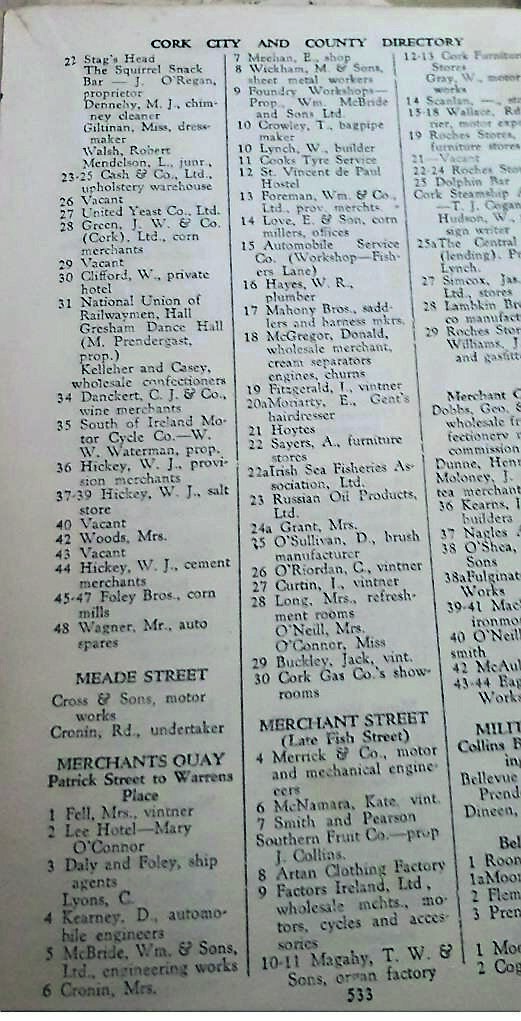 CORK CITY AND COUNTY DIRECTORY
22 Stag's Head
The Squirrel Snack
Bar — J. O'Regan,
proprietor
Dennehy, M. J., chim-
ney cleaner
Giltinan, Miss, dress-
maker
Walsh, Robert
Mendelson, L., junr.,
23-25 Cash & Co., Ltd.,
upholstery warehouse
26 Vacant
27 United Yeast Co., Ltd.
28 Green, J. W. & Co.
(Cork), Ltd., corn
merchants
29 Vacant
30 Clifford, W., private
hotel
31 National Union of
Railwaymen, Hall
Gresham Dance Hall
(M. Prendergast,
prop.)
Kelleher and Casey,
wholesale confectioners
34 Danckert, C. J. & Co.,
wine merchants
35 South of Ireland Mo-
tor Cycle Co.—W.
W. Waterman, prop.
36 Hickey, W. J., provi-
sion merchants
37-39 Hickey, W. J., salt
store
40 Vacant
42 Woods, Mrs.
43 Vacant
44 Hickey, W. J., cement
merchants
45-47 Foley Bros., corn
mills
48 Wagner, Mr., auto
spares
MEADE STREET
Cross & Sons, motor
works
Cronin, Rd., undertaker
MERCHANTS QUAY
Patrick Street to Warrens
Place
1 Fell, Mrs., vintner
2 Lee Hotel—Mary
O'Connor
3 Daly and Foley, ship
agents
Lyons, C.
4 Kearney, D., automo-
bile engineers
5 McBride, Wm. & Sons,
Ltd., engineering works
6 Cronin, Mrs.
7 Meehan, E., shop
8 Wickham, M. & Sons,
sheet metal workers
9 Foundry Workshops—
Prop., Wm. McBride
and Sons Ltd.
10 Crowley, T., bagpipe
maker
10 Lynch, W., builder
11 Cooks Tyre Service
12 St. Vincent de Paul
Hostel
13 Foreman, Wm. & Co.,
Ltd., prov. merchts.
14 Love, E. & Son, corn
millers, offices
15 Automobile Service
Co. (Workshop—Fish-
ers Lane)
16 Hayes, W. R.,
plumber
17 Mahony Bros., sadd-
lers and harness mkrs.
18 McGregor, Donald,
wholesale merchant,
cream separators
engines, churns
19 Fitzgerald, J., vintner
20a Moriarty, E., Gent's
hairdresser
21 Hoytes
22 Sayers, A., furniture
stores
22a Irish Sea Fisheries As-
sociation, Ltd.
23 Russian Oil Products,
Ltd.
24a Grant, Mrs.
25 O'Sullivan, D., brush
manufacturer
26 O'Riordan, C., vintner
27 Curtin, J., vintner
28 Long, Mrs., refresh-
ment rooms
O'Neill, Mrs.
O'Connor, Miss
29 Buckley, Jack, vint.
30 Cork Gas Co.'s show-
rooms
MERCHANT STREET
(Late Fish Street)
4 Merrick & Co., motor
and mechanical engine-
ers
6 McNamara, Kate, vint.
7 Smith and Pearson
Southern Fruit Co.—prop
J. Collins.
8 Artan Clothing Factory
9 Factors Ireland, Ltd.,
wholesale mchts., mo-
tors, cycles and acces-
sories
10-11 Magahy, T. W. &
Sons, organ factory
12-13 Cork Furnitur
Stores
Gray, W., motor
works
14 Scanlan, —,
15-18 Wallace, Rd
rier, motor expr
19 Roches Stores,
furniture stores
21—Vacant
22-24 Roches Sto
25 Dolphin Bar
Cork Steamship
—T. J. Cogan
Hudson, W.,
sign writer
25a The Central
(lending). P
Lynch.
27 Simcox, Jas.
Ltd., stores
28 Lambkin Bro
co manufact
29 Roches Stor
Williams, J.
and gasfitt
Merchant
Dobbs, Geo. &
wholesale fr
fectionery
commission
Dunne, Henr
Moloney, J.
tea merchant
36 Kearns,
builders
37 Nagles
38 O'Shea,
Sons
38a Fulginat
Works
39-41 Mac
ironmo
40 O'Neil
smith
42 McAul
43-44 Eag
Work
MILIT
Collins B
Bellevue
Prend
Dineen,
Bel
1 Roon
1a Moor
2 Flem
3 Pren
1 Moo
2 Cog
533